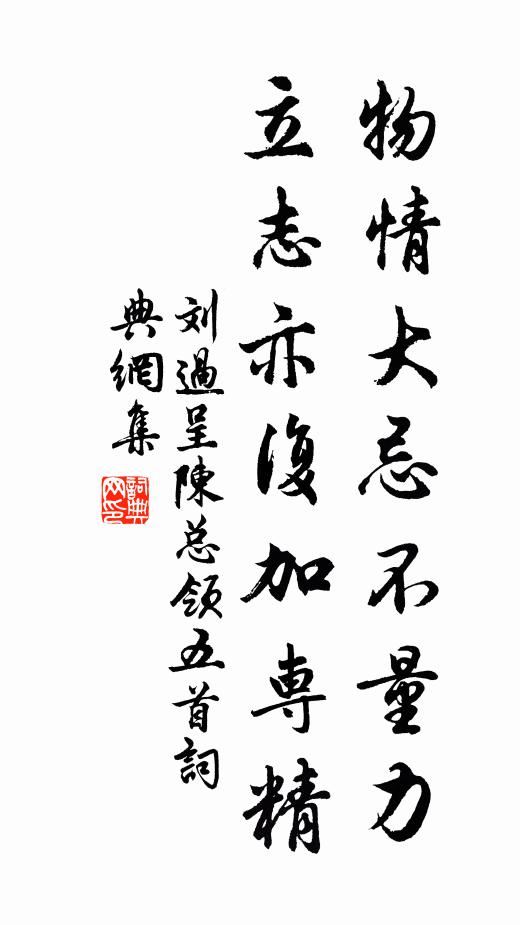 物情大忌不量力
立志亦復加専精
刘過呈陳总領五首詞
典網集
詞典网印